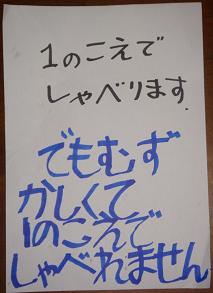 1のこえで
しゃべります.
でもむず
かしくて
1のこえで
しゃべれません